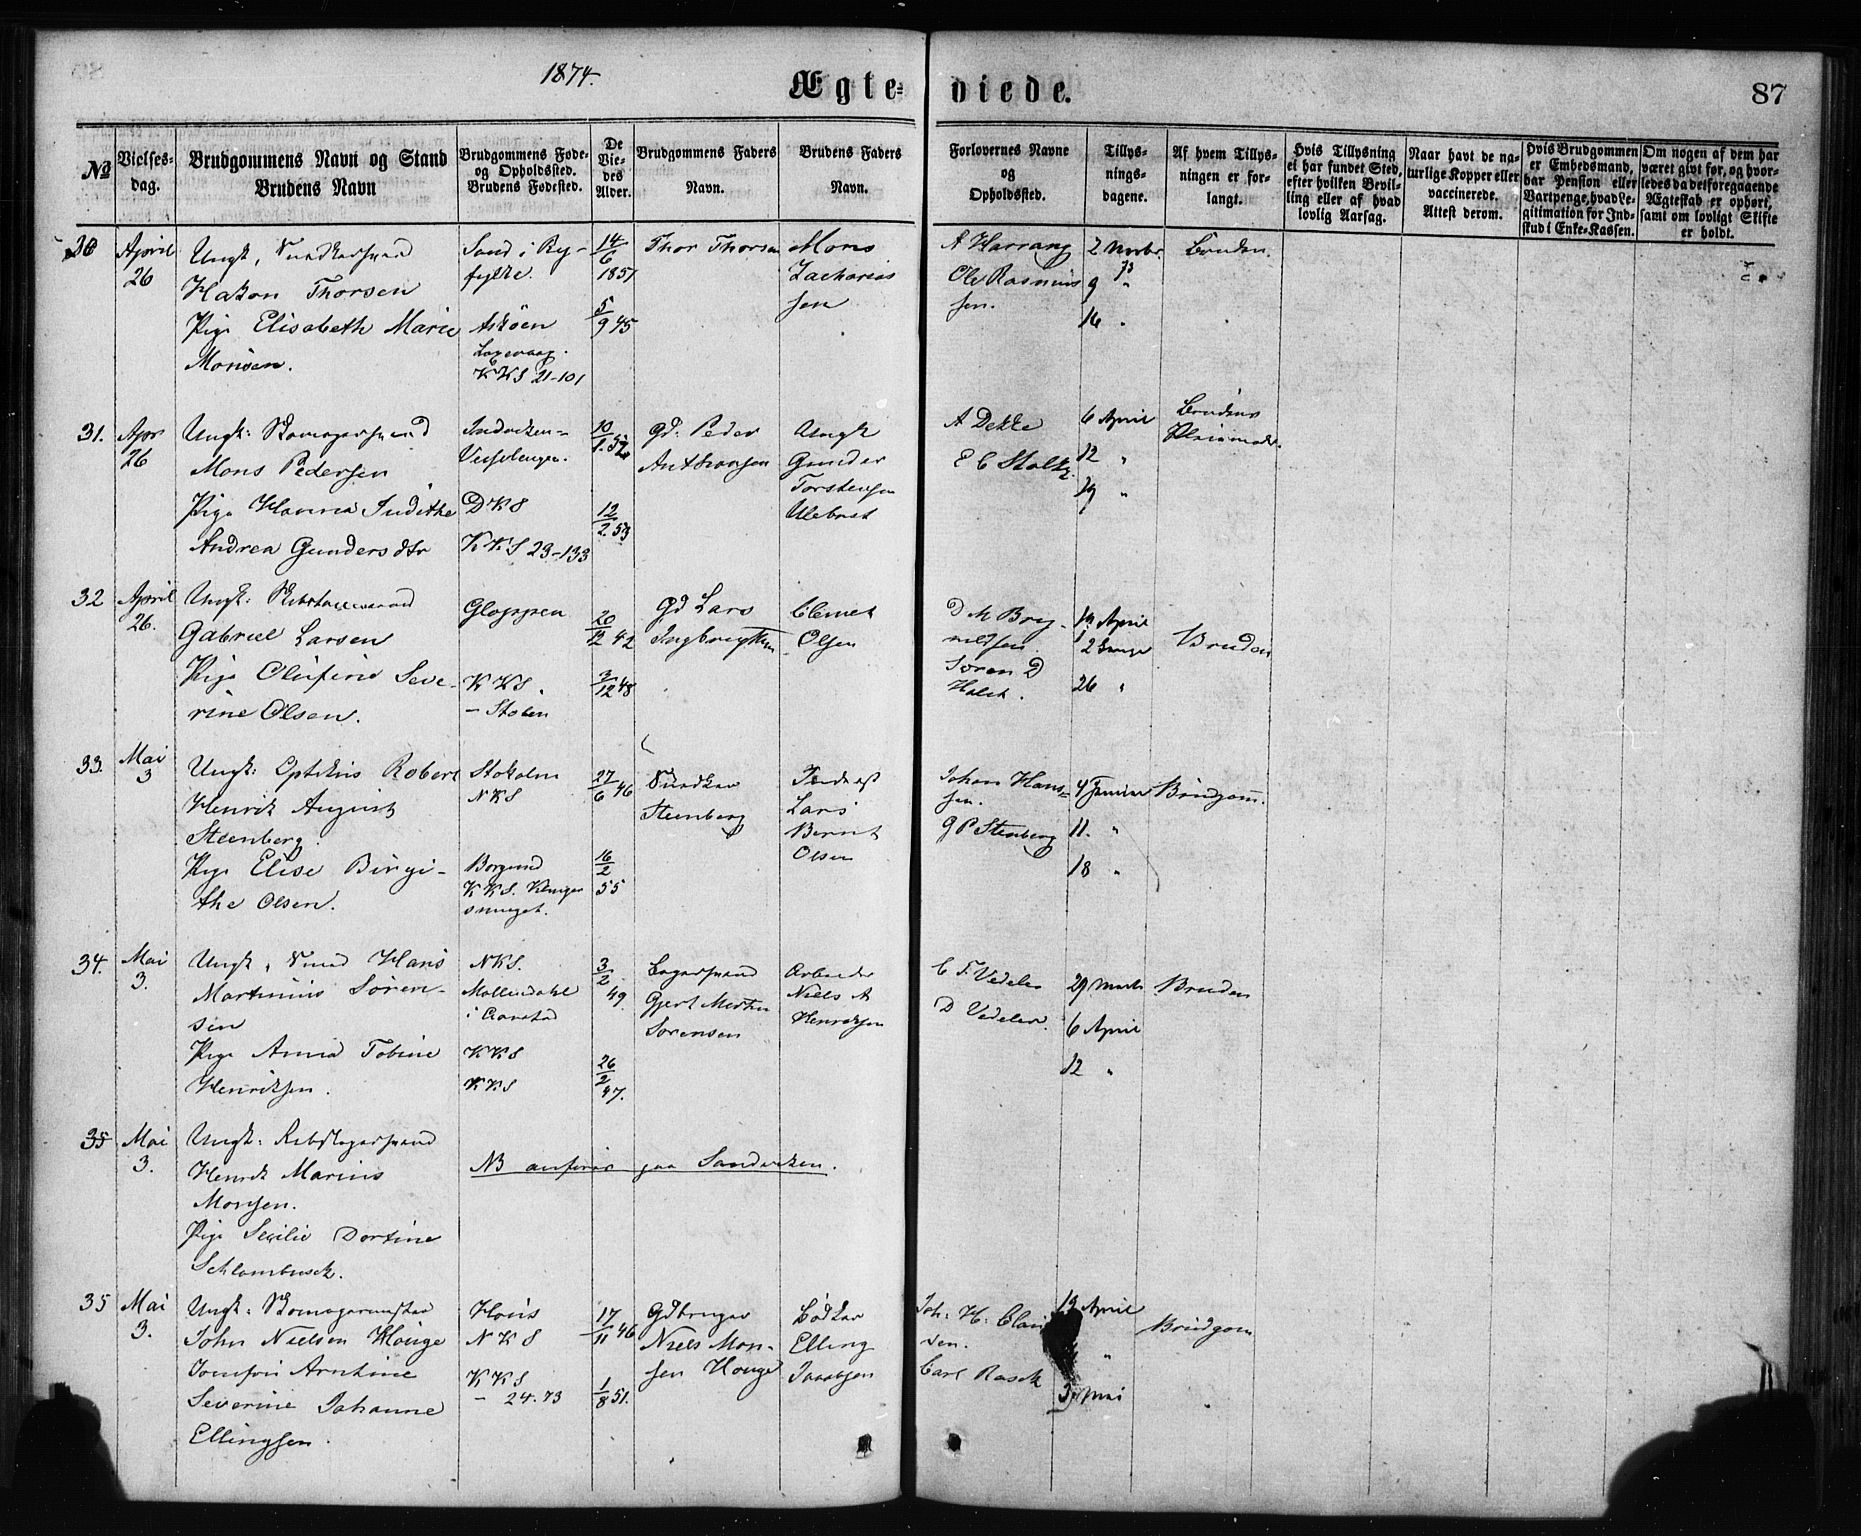 1874.
Ægte- viede. 87
No
Vielses-
dag.
Brudgommens Navn og Stand
Brudens Navn
Brudgommens Føde-
og Opholdssted.
Brudens Fødested.
De
Vie-
des
Alder.
Brudgommens Faders
Navn.
Brudens Faders
Navn.
Forlovernes Navne
og
Opholdssted.
Tillys-
nings-
dagene.
Af hvem Tillys-
ningen er for-
langt.
Hvis Tillysning
ei har fundet Sted,
efter hvilken Bevil-
ling eller af hvad
lovlig Aarsag.
Naar havt de na-
turlige Kopper eller
vaccinerede.
Attest derom.
Hvis Brudgommen
er Embedsmand,
har Pension eller
Vartpenge, hvad Le-
gitimation for Ind-
skud i Enke-Kassen.
Om nogen af dem har
været givt før, og hvor-
ledes da det foregaaende
Ægteskab er ophørt,
samt om lovligt Skifte
er holdt.
30
April
26
Ungk,
Hakon Thorsen
Pige Elisabeth Marie
Monsen.
Sand i Ry-
fylke.
Askøen
KKS 21-101
14
6
1851
5
9 45
Thor Thorsen
Mons
Zacharias
sen
A Harrang
Ole Rasmus
sen.
2
9 "
16 "
Bruden.
31.
Apr
26
Ungk:
Mons Pedersen
Pige Hanna Judithe
Andrea Gundersdtr
DKS
KKS 23-133
10
1. 52
12
2. 53
Gd: Peder
Anthonsen
Gunder
Torstensen
A Dekke
E C Stoltz.
6 April
12 "
19 "
Brudens
32
April
26.
Ungk:
Gabriel Larsen
Pige Olufine Seve-
rine Olsen.
Gloppen
KKS.
- Stølen
20
12 42
3
12 48
Gd Lars
Ingbrigtsen
Clemet
Olsen
D M Bry-
nildsen
Søren D
Holst.
April
26 "
Bruden
33.
Mai
3
Ungk: Optikus Robert
Henrik August
Steenberg.
Pige Elise Birgi-
the Olsen.
Stokolm
NKS
Borgund
KKS. Klinge
smuget.
27
6 46
16
2
55
Snedker
Steenberg
Lars
Bernt
Olsen
Johan Hans-
sen.
G P Steenberg
4
11. "
18 "
Brudgom.
34.
Mai
3.
Ungk, Smed Hans
Martinus Søren-
sen
Pige Anna Tobine
Henriksen.
NKS.
Møllendahl
KKS
KKS
3
2
49.
26
2
47.
Gjert Morten
Sørensen
Arbeider
Niels A
Henriksen
C F. Vedeler
D Vedeler.
29 Marts
6 April
12 "
Bruden
35
Mai
3.
Ungk: Rebslagersvend
Henrik Marius
Monsen.
Pige Secilie Dortine
Schlambusch.
NB anføres paa Sandviken.
35
Mai
3.
Ungk: Skomagermester
John Nielsen Houge
Jomfru Arntine
Severine Johanne
Ellingsen.
Hous
NKS
KKS
- 24-73
17
11 46
1
8 51.
Gdbruger
Niels Mon-
sen Houge
Bødker
Elling
Jacobsen
Joh: H:
Carl Rasch
19 April
"
3 Mai
Brudgom